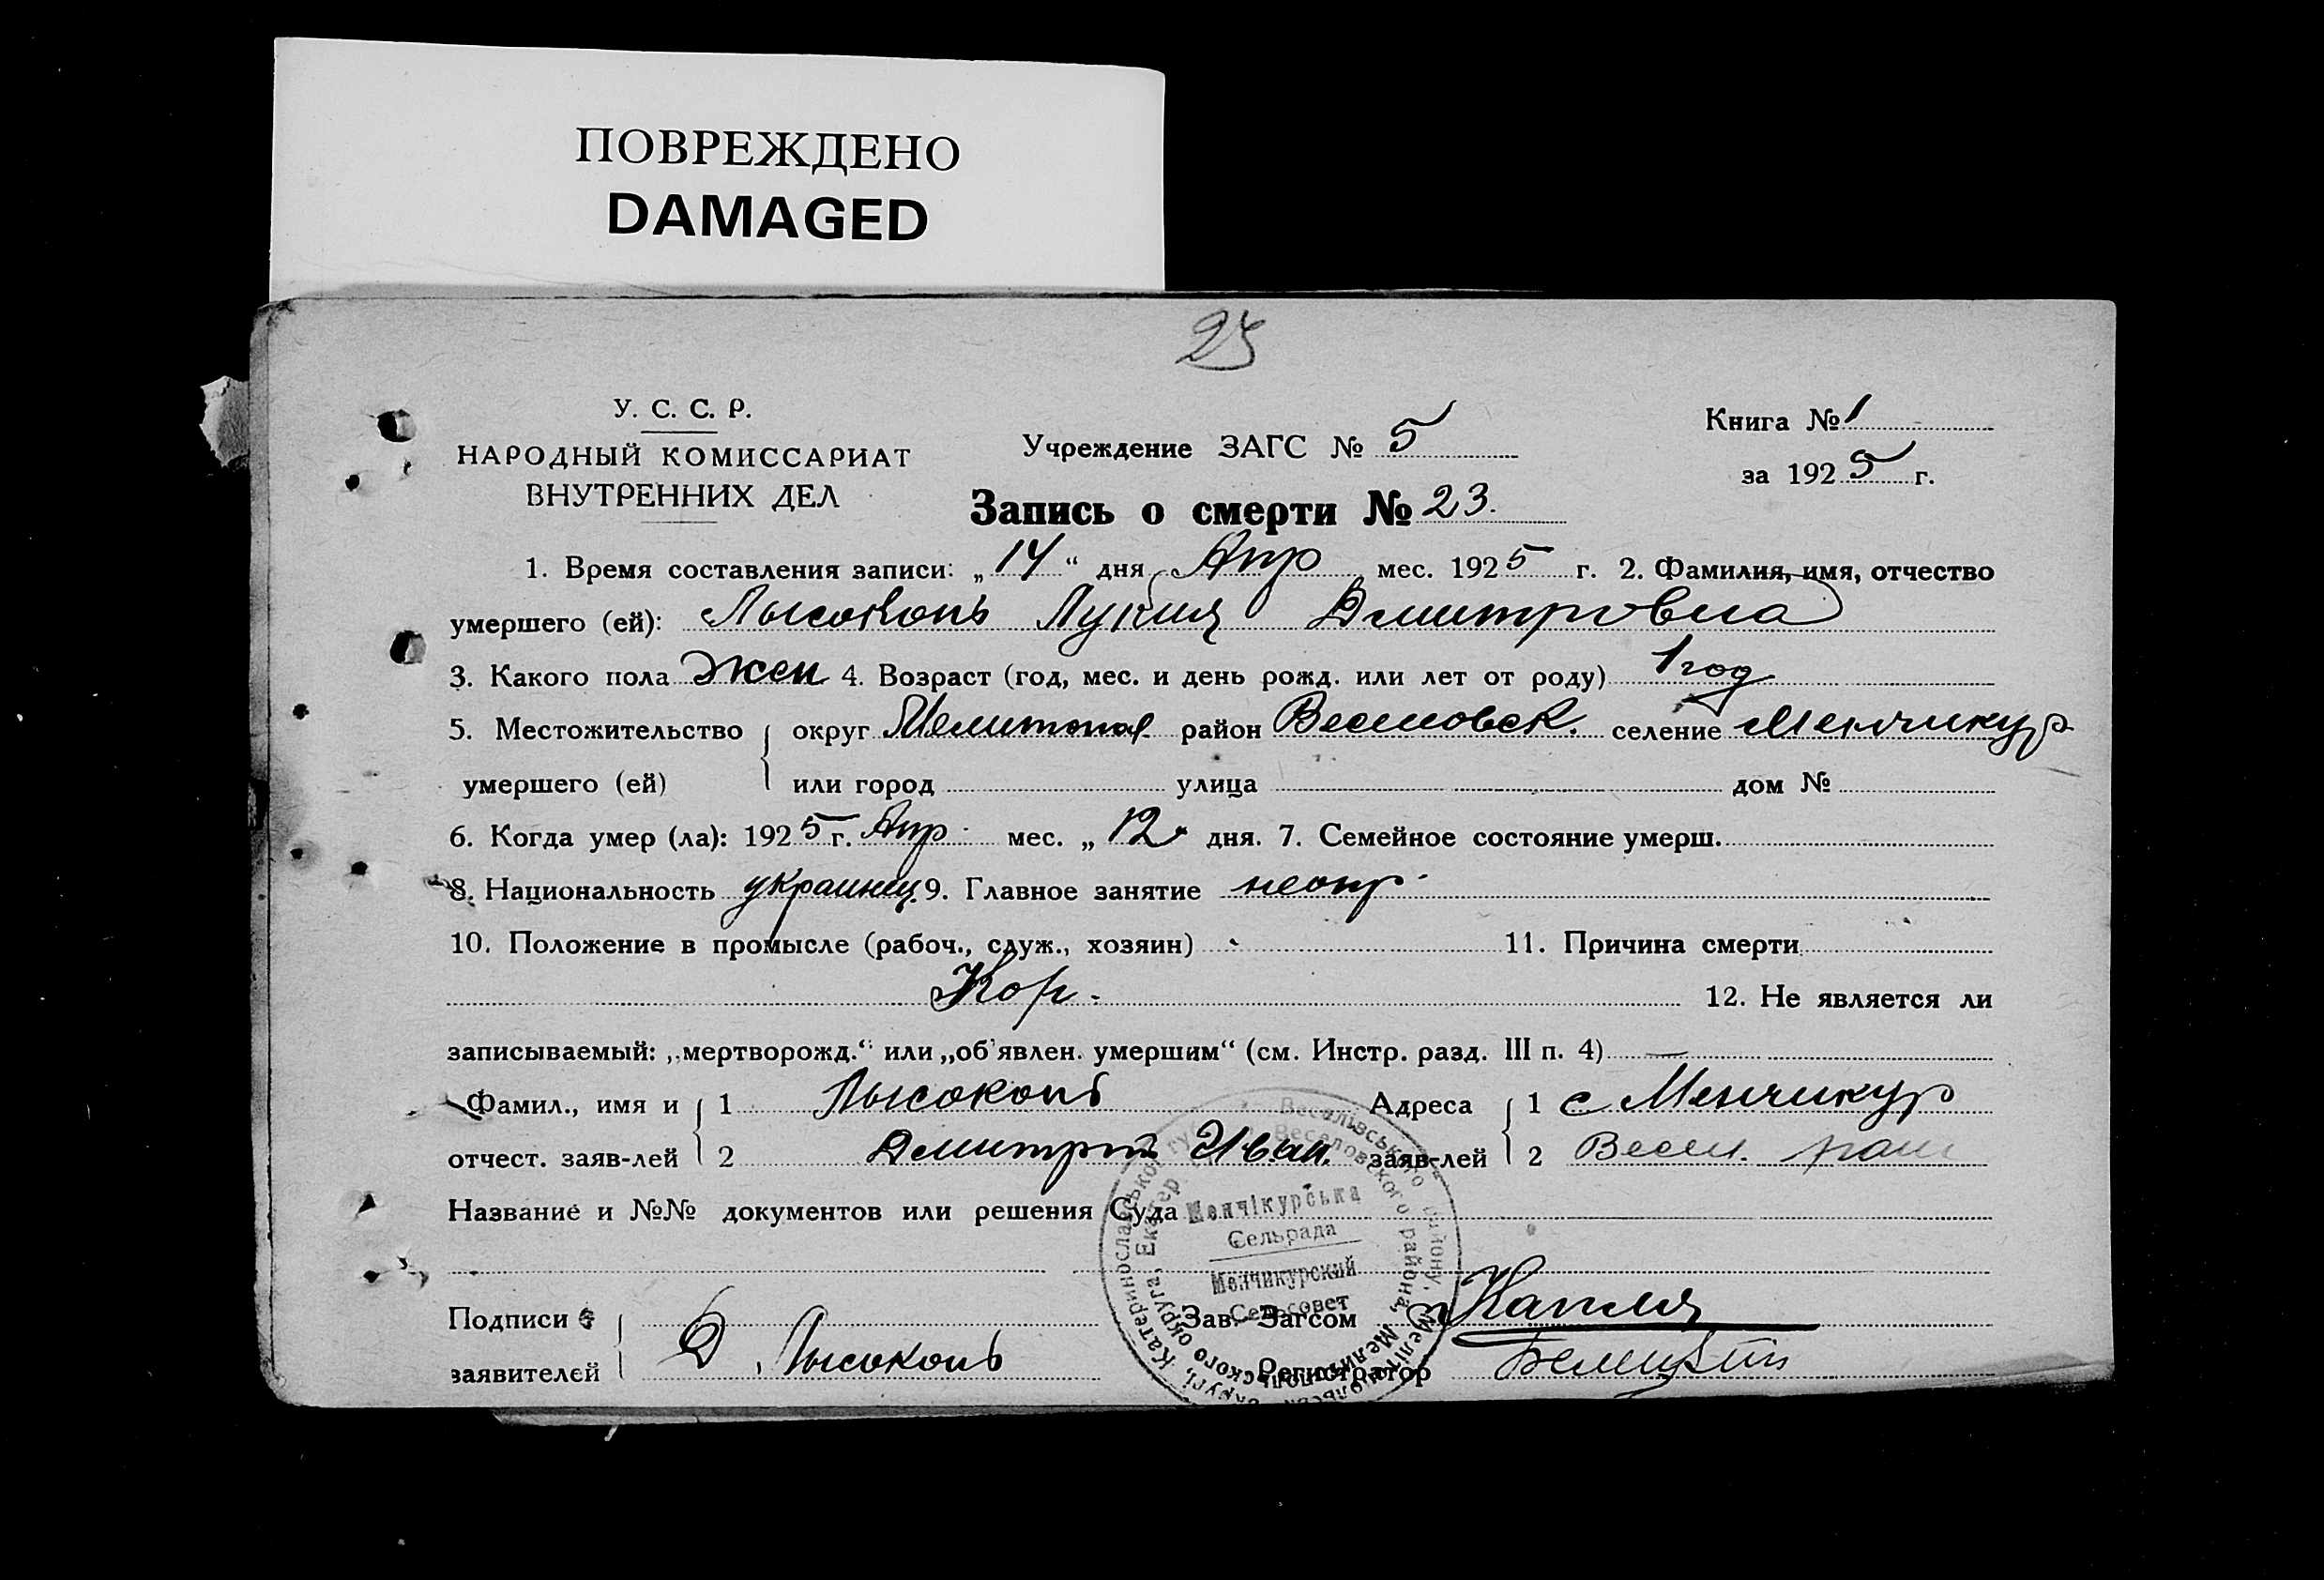 ПОВРЕЖДЕНО
DAMAGED
23
У. С. С. Р.
НАРОДНЫЙ КОМИССАРИАТ
ВНУТРЕННИХ ДЕЛ
Учреждение ЗАГС № 5
Книга № 1
за 1925 г.
Запись о смерти № 23.
1. Время составления записи: „14“ дня Апр мес. 1925 г. 2. Фамилия, имя, отчество
умершего (ей): Лысоконь Лукия Дмитровна
3. Какого пола жен 4. Возраст (год, мес. и день рожд. или лет от роду) 1 год
5. Местожительство округ Мелитопол район Веселовск. селение Менчикур
умершего (ей) или город улица дом №
6. Когда умер (ла): 1925 г. Апр. мес. „12 дня. 7. Семейное состояние умерш.
8. Национальность украинец 9. Главное занятие неопр.
10. Положение в промысле (рабоч., служ., хозяин) 11. Причина смерти
Кор. 12. Не является ли
записываемый: „мертворожд.“ или „об'явлен. умершим“ (см. Инстр. разд. III п. 4) —
Фамил., имя и 1 Лысоконь Адреса 1 с Менчикур
отчест. заяв-лей 2 Дмитрий Иван. заяв-лей 2 Весел. рай
Название и №№ документов или решения Суда
Менчікурська
Сельрада
Менчикурский
Сельсовет
Подписи Зав. Загсом
заявителей Д. Лысоконь Регистратор